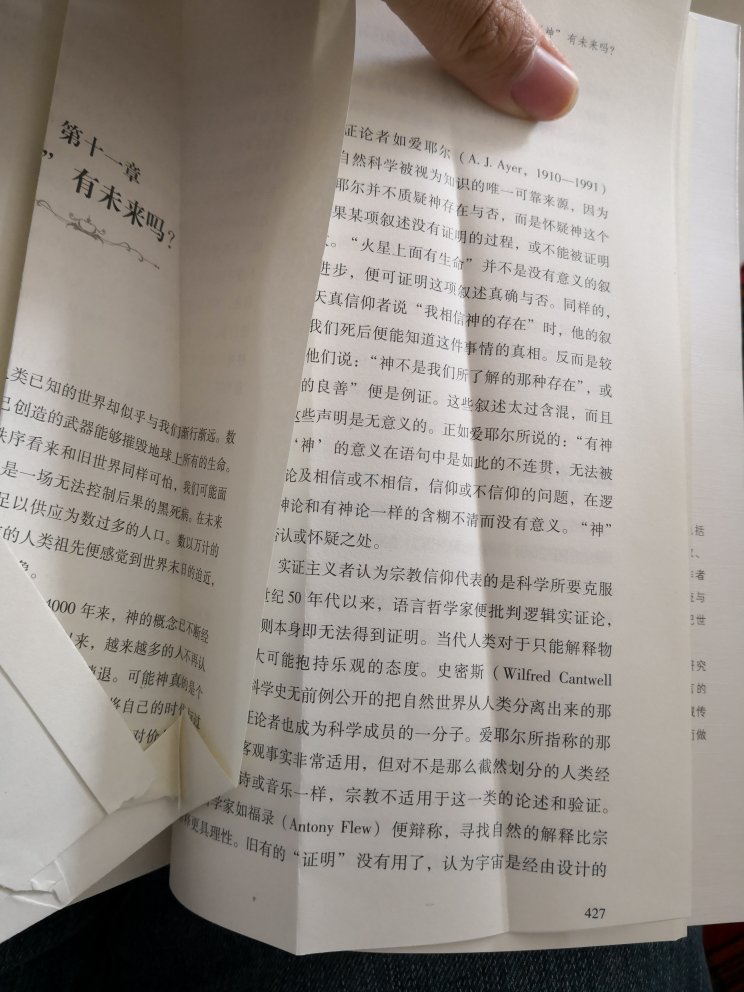 第十一章
” 有未来吗?
类已知的世界却似乎与我们渐行渐远。数
己创造的武器能够摧毁地球上所有的生命。
秩序看来和旧世界同样可怕,我们可能面
是一场无法控制后果的黑死病。在未来
足以供应为数过多的人口。数以万计的
的人类祖先便感觉到世界末日的迫近,
4000 年来,神的概念已不断经
来,越来越多的人不再认
消退。可能神真的是个
将自己的时代
神” 有未来吗?
证论者如爱耶尔(A. J. Ayer,1910—1991)
自然科学被视为知识的唯一可靠来源,因为
耶尔并不质疑神存在与否,而是怀疑神这个
果某项叙述没有证明的过程,或不能被证明
。“火星上面有生命” 并不是没有意义的叙
进步,便可证明这项叙述真确与否。同样的,
天真信仰者说“我相信神的存在” 时,他的叙
我们死后便能知道这件事情的真相。反而是较
他们说:“神不是我们所了解的那种存在”,或
的良善” 便是例证。这些叙述太过含混,而且
这些声明是无意义的。正如爱耶尔所说的:“有神
‘神’ 的意义在语句中是如此的不连贯,无法被
论及相信或不相信,信仰或不信仰的问题,在逻
神论和有神论一样的含糊不清而没有意义。“神”
否认或怀疑之处。
实证主义者认为宗教信仰代表的是科学所要克服
世纪 50 年代以来,语言哲学家便批判逻辑实证论,
则本身即无法得到证明。当代人类对于只能解释物
大可能抱持乐观的态度。史密斯(Wilfred Cantwell
科学史无前例公开的把自然世界从人类分离出来的那
证论者也成为科学成员的一分子。爱耶尔所指称的那
客观事实非常适用,但对不是那么截然划分的人类经
诗或音乐一样,宗教不适用于这一类的论述和验证。
学家如福录(Antony Flew)便辩称,寻找自然的解释比宗
更具理性。旧有的“证明” 没有用了,认为宇宙是经由设计的
427
括
者
与
世
研究
的
传
做